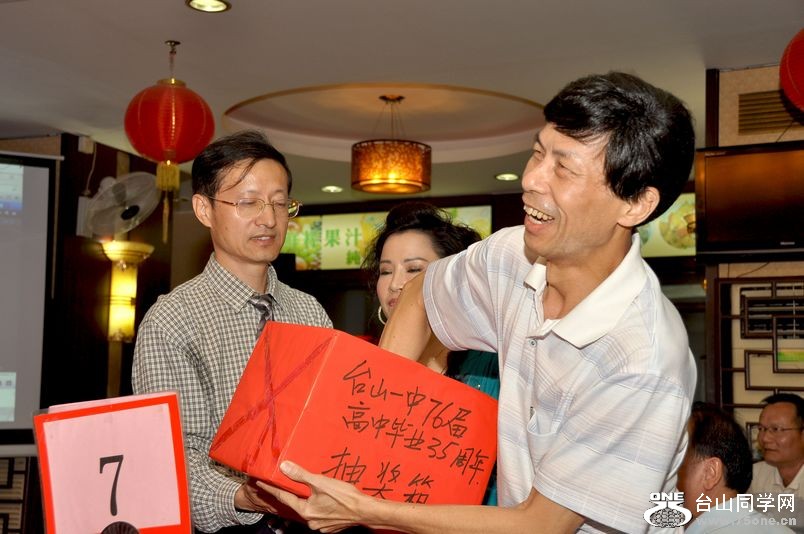 鲜榨果汁
台山一中76届
高中毕业35周年
抽奖箱
7
ONE 台山同学网
www.75one.cn